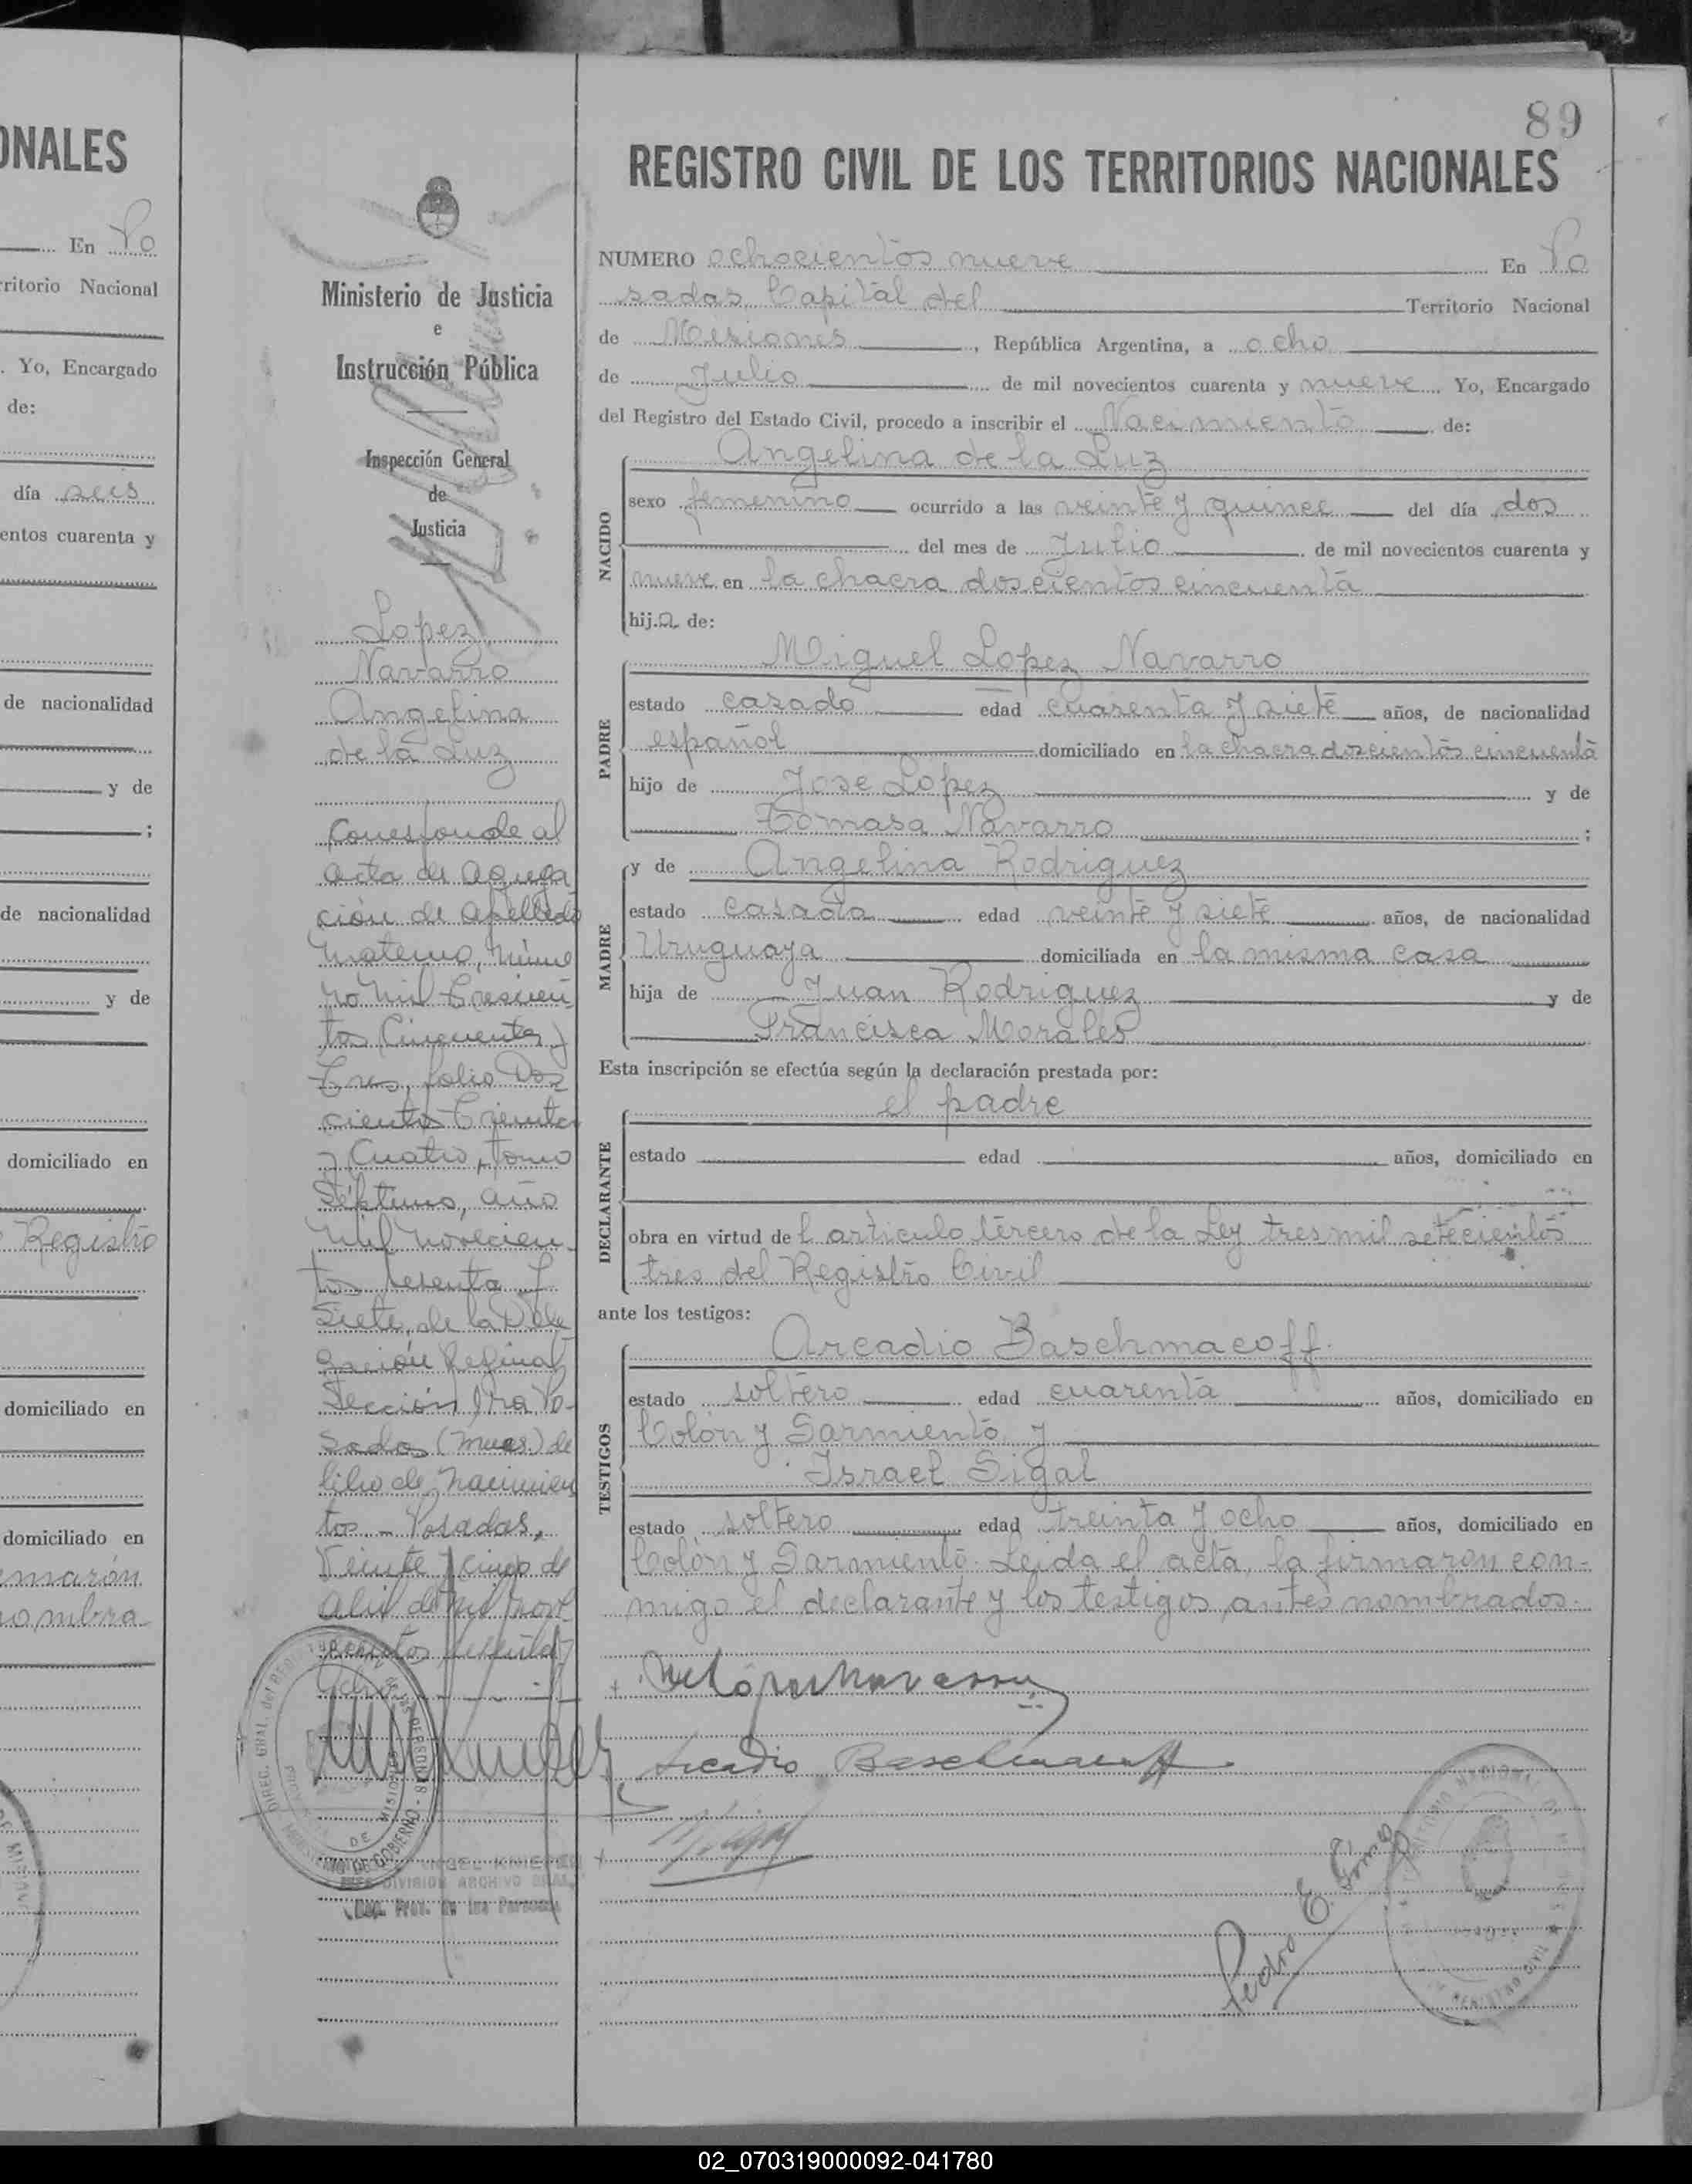 ONALES
En Po
rritorio Nacional
. Yo, Encargado
de:
día seis
entos cuarenta y
de nacionalidad
y de
;
de nacionalidad
y de
domiciliado en
Registro
domiciliado en
domiciliado en
marón
nombra
Ministerio de Justicia
e
Instrucción Pública
Inspección General
de
Justicia
Lopez
Navarro
Angelina
de la Luz
Corresponde al
acta de agrega
ción de apellido
materno, núme
ro mil trescien
tos Cincuenta y
tres, folio Dos
cientos treinta
y Cuatro, tomo
Séptimo, año
mil novecien
tos sesenta y
siete, de la Dele
gación Regional
Sección 1ra Po-
sadas (Mnes) de
libro de nacimien
tos - Posadas,
Veinte y cinco de
abril de mil nove
cientos sesenta y
ocho
DIVISION ARCHIVO GRAL
Dir. Prov. de las Personas
89
REGISTRO CIVIL DE LOS TERRITORIOS NACIONALES
NUMERO ochocientos nueve En Po
sadas, Capital del Territorio Nacional
de Misiones, República Argentina, a ocho
de Julio de mil novecientos cuarenta y nueve. Yo, Encargado
del Registro del Estado Civil, procedo a inscribir el Nacimiento de:
NACIDO
Angelina de la Luz
sexo femenino ocurrido a las veinte y quince del día dos
del mes de Julio de mil novecientos cuarenta y
nueve en la chacra doscientos cincuenta
hij.a de:
PADRE
Miguel Lopez Navarro
estado casado edad cuarenta y siete años, de nacionalidad
español domiciliado en la chacra doscientos cincuenta
hijo de Jose Lopez y de
Tomasa Navarro ;
MADRE
y de Angelina Rodriguez
estado casada edad veinte y siete años, de nacionalidad
Uruguaya domiciliada en la misma casa
hija de Juan Rodriguez y de
Francisca Morales
Esta inscripción se efectúa según la declaración prestada por:
DECLARANTE
el padre
estado edad años, domiciliado en
obra en virtud de l articulo tercero de la Ley tres mil setecientos
tres del Registro Civil
ante los testigos:
TESTIGOS
Arcadio Baschmacoff.
estado soltero edad cuarenta años, domiciliado en
Colón y Sarmiento y
Israel Sigal
estado soltero edad treinta y ocho años, domiciliado en
Colón y Sarmiento. Leida el acta, la firmaron con-
migo el declarante y los testigos antes nombrados.
Arcadio Baschmacoff
Pedro E.
02_070319000092-041780